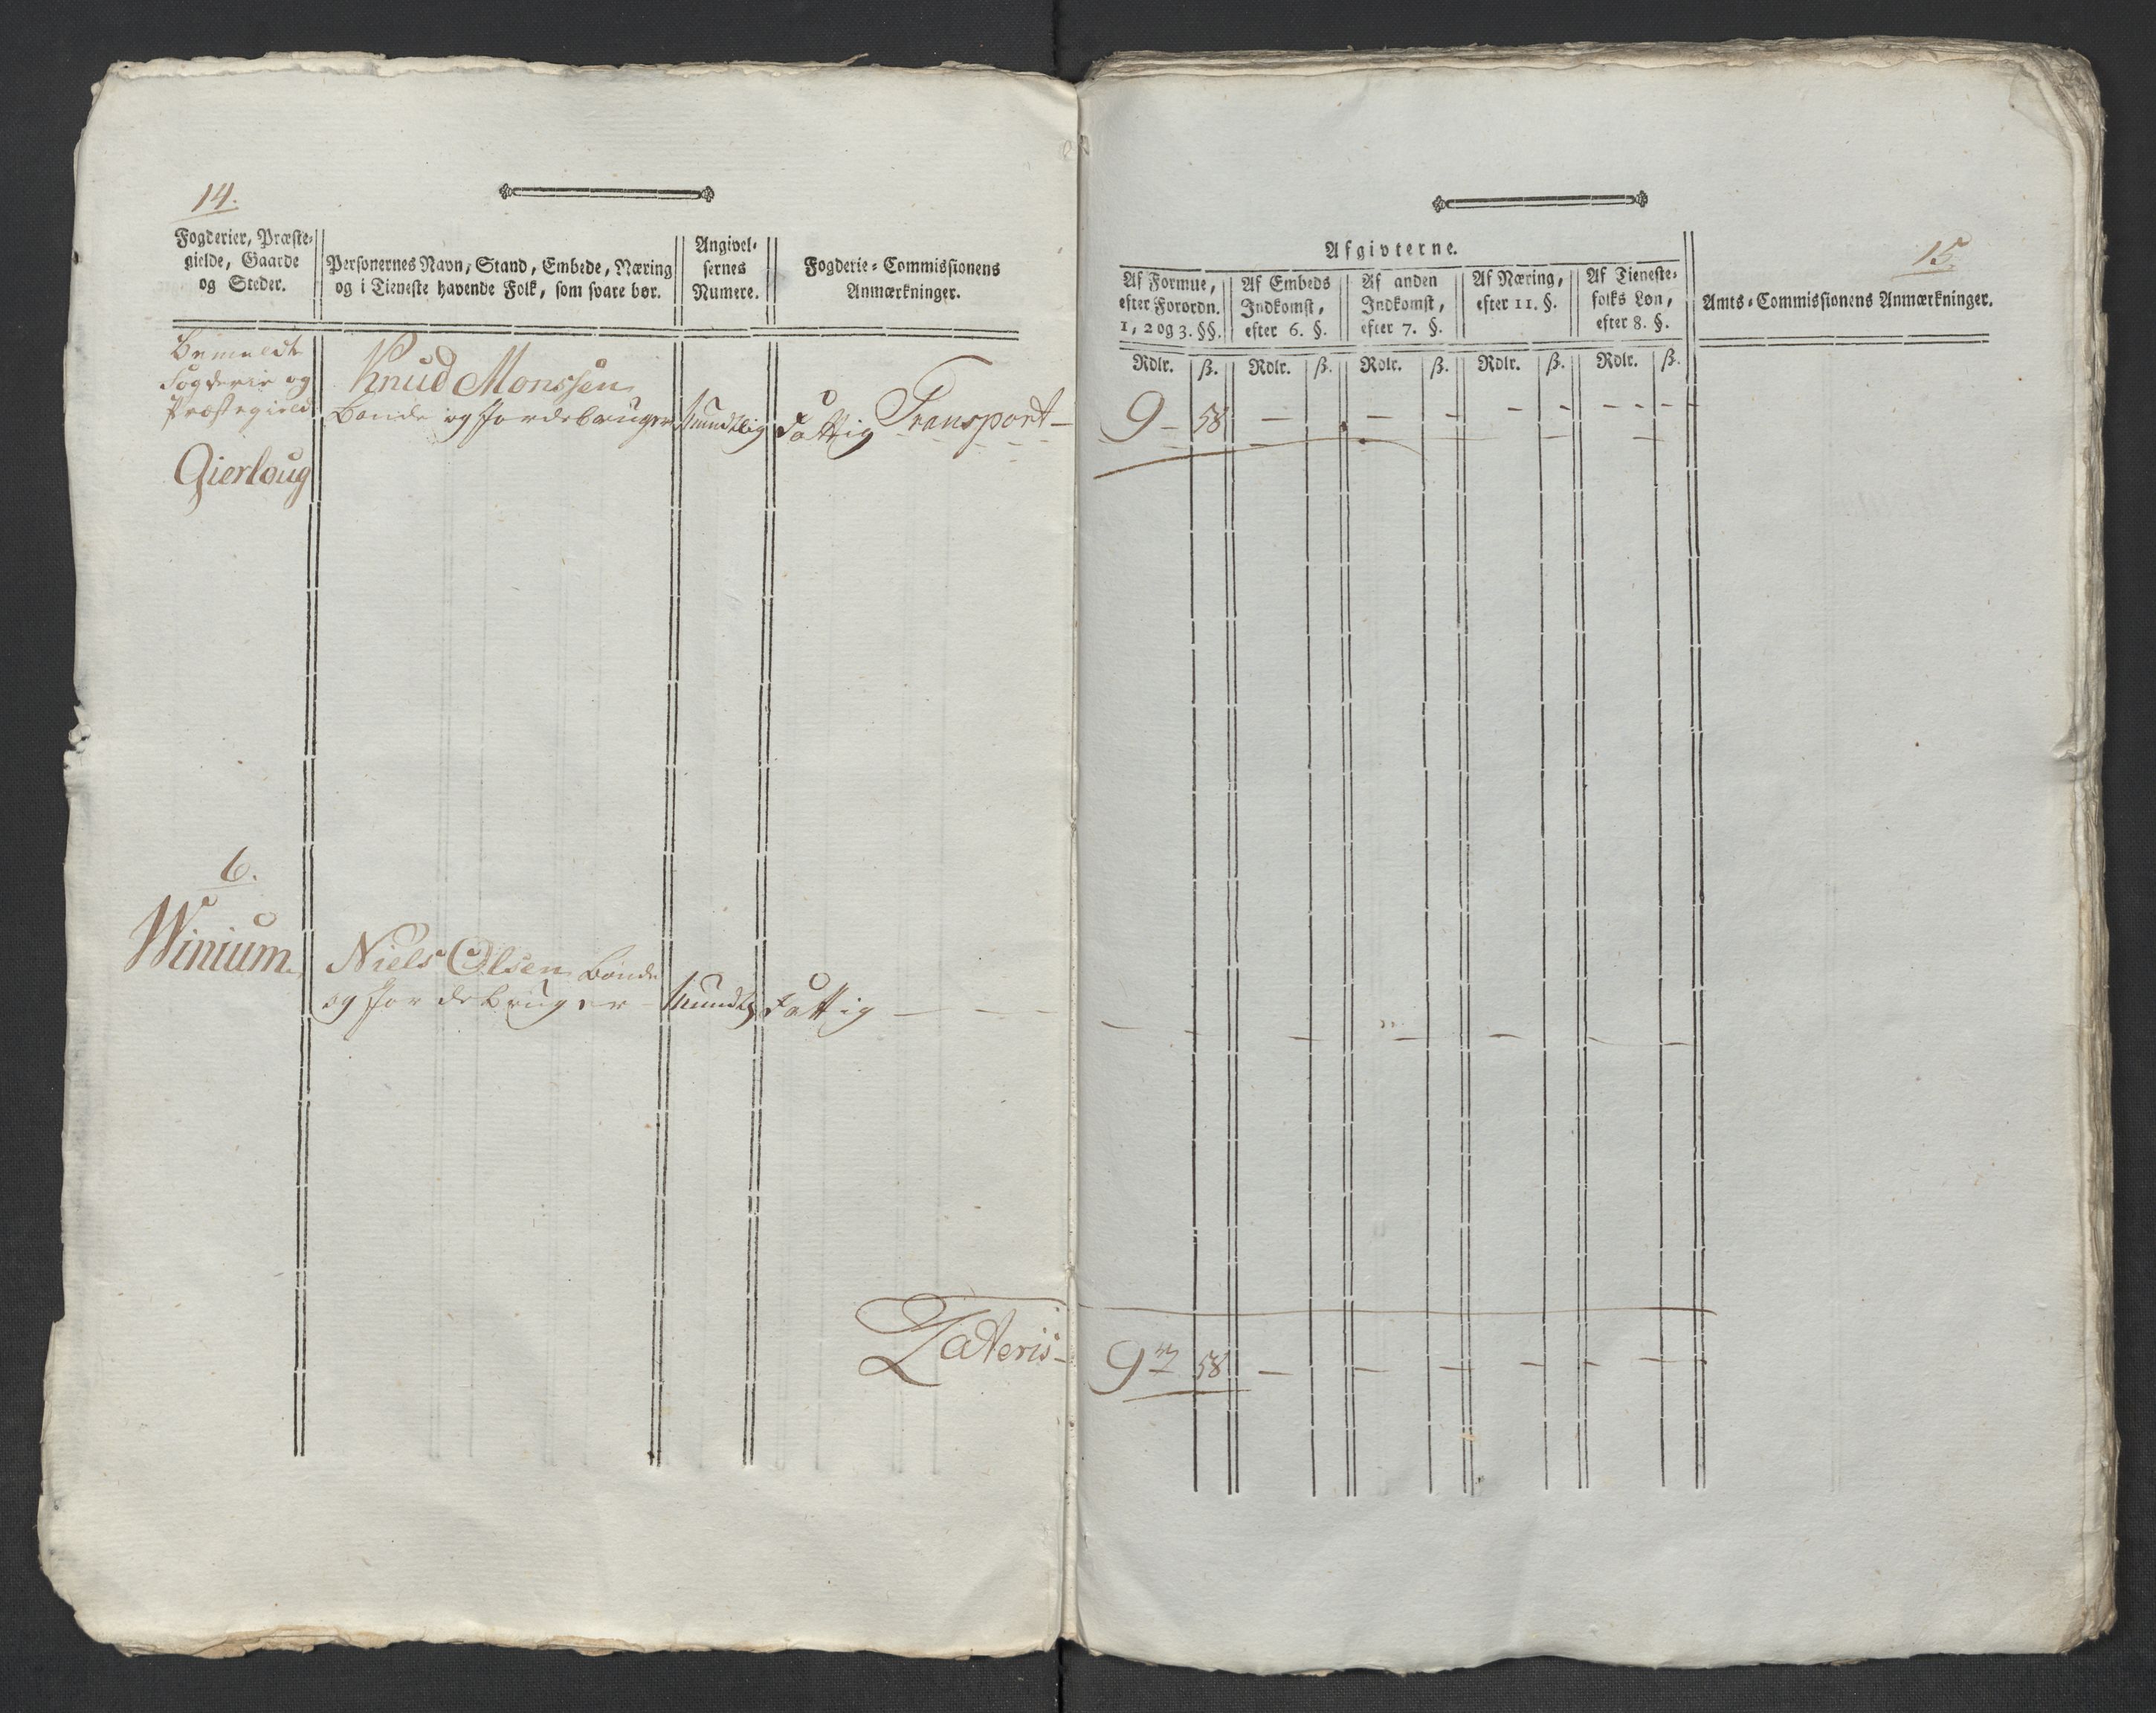 14.
Fogderier, Præste-
gielde, Gaarde
og Steder.
Personernes Navn, Stand, Embede, Næring
og i Tieneste havende Folk, som svare bør.
Angivel-
sernes
Numere.
Fogderie-Commissionens
Anmærkninger.
Bemeldte
Fogderie og
Præstegield
Gierloug
Knud Monssen
Bonde og Jordebruger
Mundtlig
Fattig
Transport
6.
Winium
Niels Olsen Bonde
og Jordebruger
Mundtlig
Fattig
Lateris
15.
Afgivterne.
Af Formue,
efter Forordn.
1, 2 og 3. §§.
Af Embeds
Indkomst,
efter 6. §.
Af anden
Indkomst,
efter 7. §.
Af Næring,
efter 11. §.
Af Tieneste-
folks Løn,
efter 8. §.
Amts-Commissionens Anmærkninger.
Rdlr. ß. Rdlr. ß. Rdlr. ß. Rdlr. ß. Rdlr. ß.
9 - 58 - - - - - - - - -
9 58 - - - - - - -